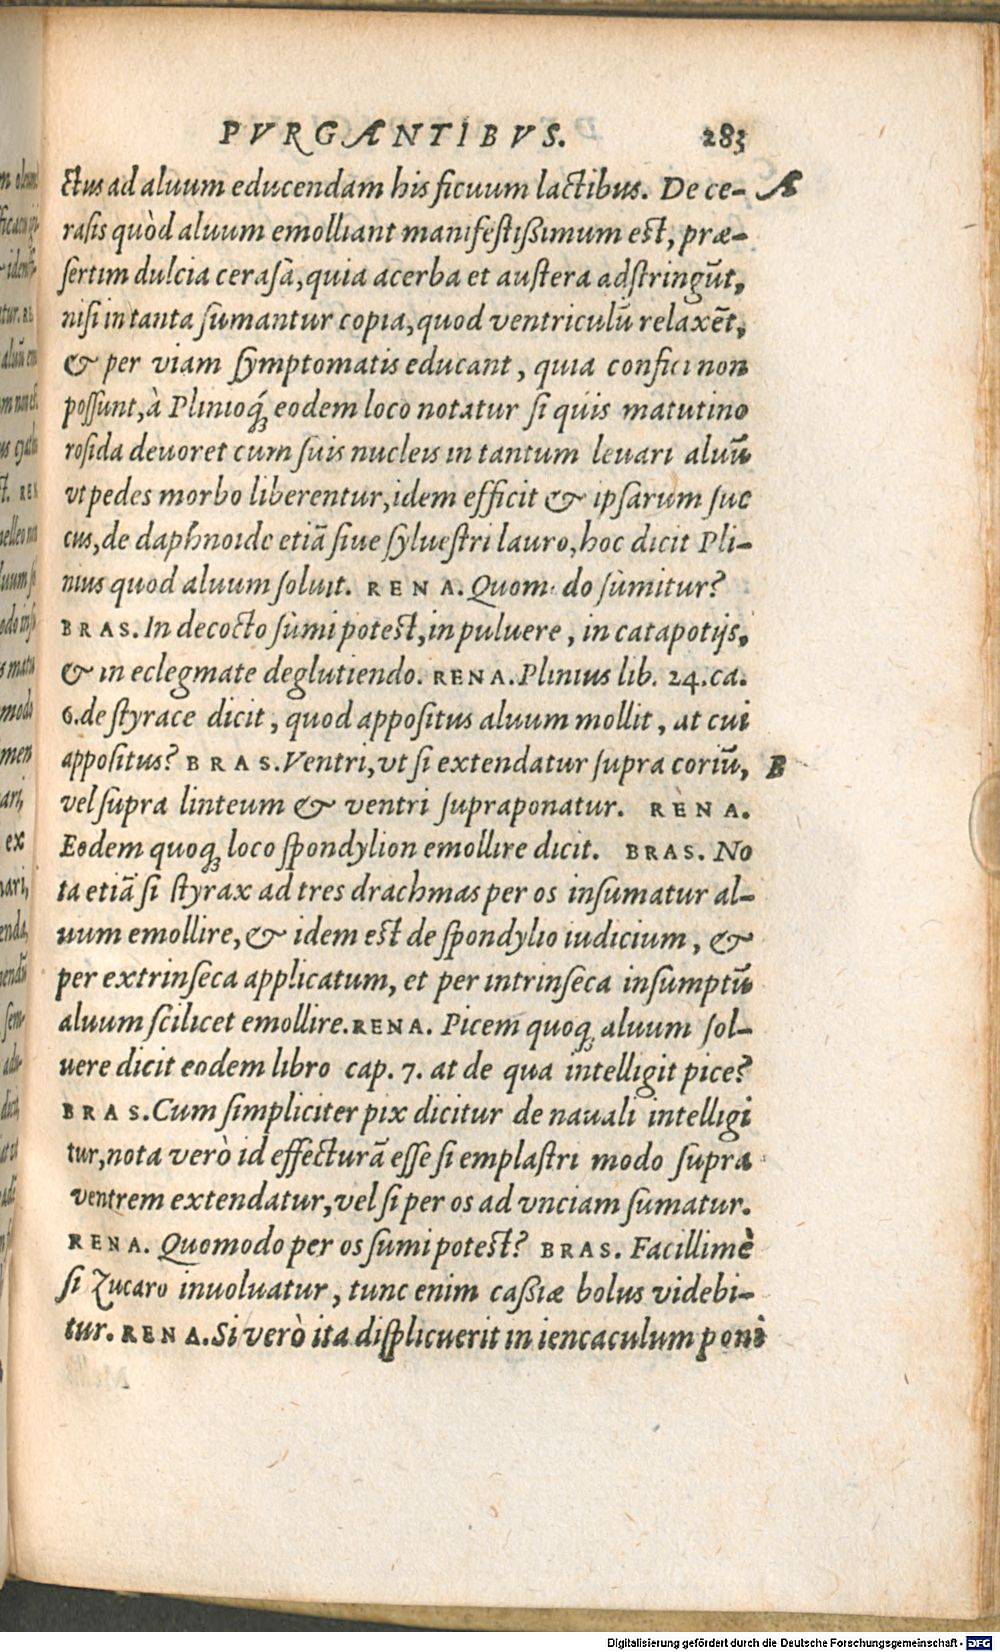 PVRGANTIBVS. 283
ctus ad aluum educendam his ficuum lactibus. De ce- A
rasis quòd aluum emolliant manifestißimum est, præ-
sertim dulcia cerasa, quia acerba et austera adstringūt,
nisi in tanta sumantur copia, quod ventriculū relaxēt,
& per viam symptomatis educant, quia confici non
possunt, à Plinioq́; eodem loco notatur si quis matutino
rosida deuoret cum suis nucleis in tantum leuari aluū
vt pedes morbo liberentur, idem efficit & ipsarum suc
cus, de daphnoide etiā siue syluestri lauro, hoc dicit Pli-
nius quod aluum soluit. RENA. Quom do sumitur?
BRAS. In decocto sumi potest, in puluere, in catapotijs,
& in eclegmate deglutiendo. RENA. Plinius lib. 24. ca.
6. de styrace dicit, quod appositus aluum mollit, at cui
appositus? BRAS. Ventri, vt si extendatur supra coriū, B
vel supra linteum & ventri supraponatur. RENA.
Eodem quoq; loco spondylion emollire dicit. BRAS. No
ta etiā si styrax ad tres drachmas per os insumatur al-
uum emollire, & idem est de spondylio iudicium, &
per extrinseca applicatum, et per intrinseca insumptū
aluum scilicet emollire. RENA. Picem quoq; aluum sol-
uere dicit eodem libro cap. 7. at de qua intelligit pice?
BRAS. Cum simpliciter pix dicitur de nauali intelligi
tur, nota verò id effecturā esse si emplastri modo supra
ventrem extendatur, vel si per os ad vnciam sumatur.
RENA. Quomodo per os sumi potest? BRAS. Facillimè
si Zucaro inuoluatur, tunc enim caßiæ bolus videbi-
tur. RENA. Si verò ita displicuerit in iencaculum poni
Digitalisierung gefördert durch die Deutsche Forschungsgemeinschaft - DFG